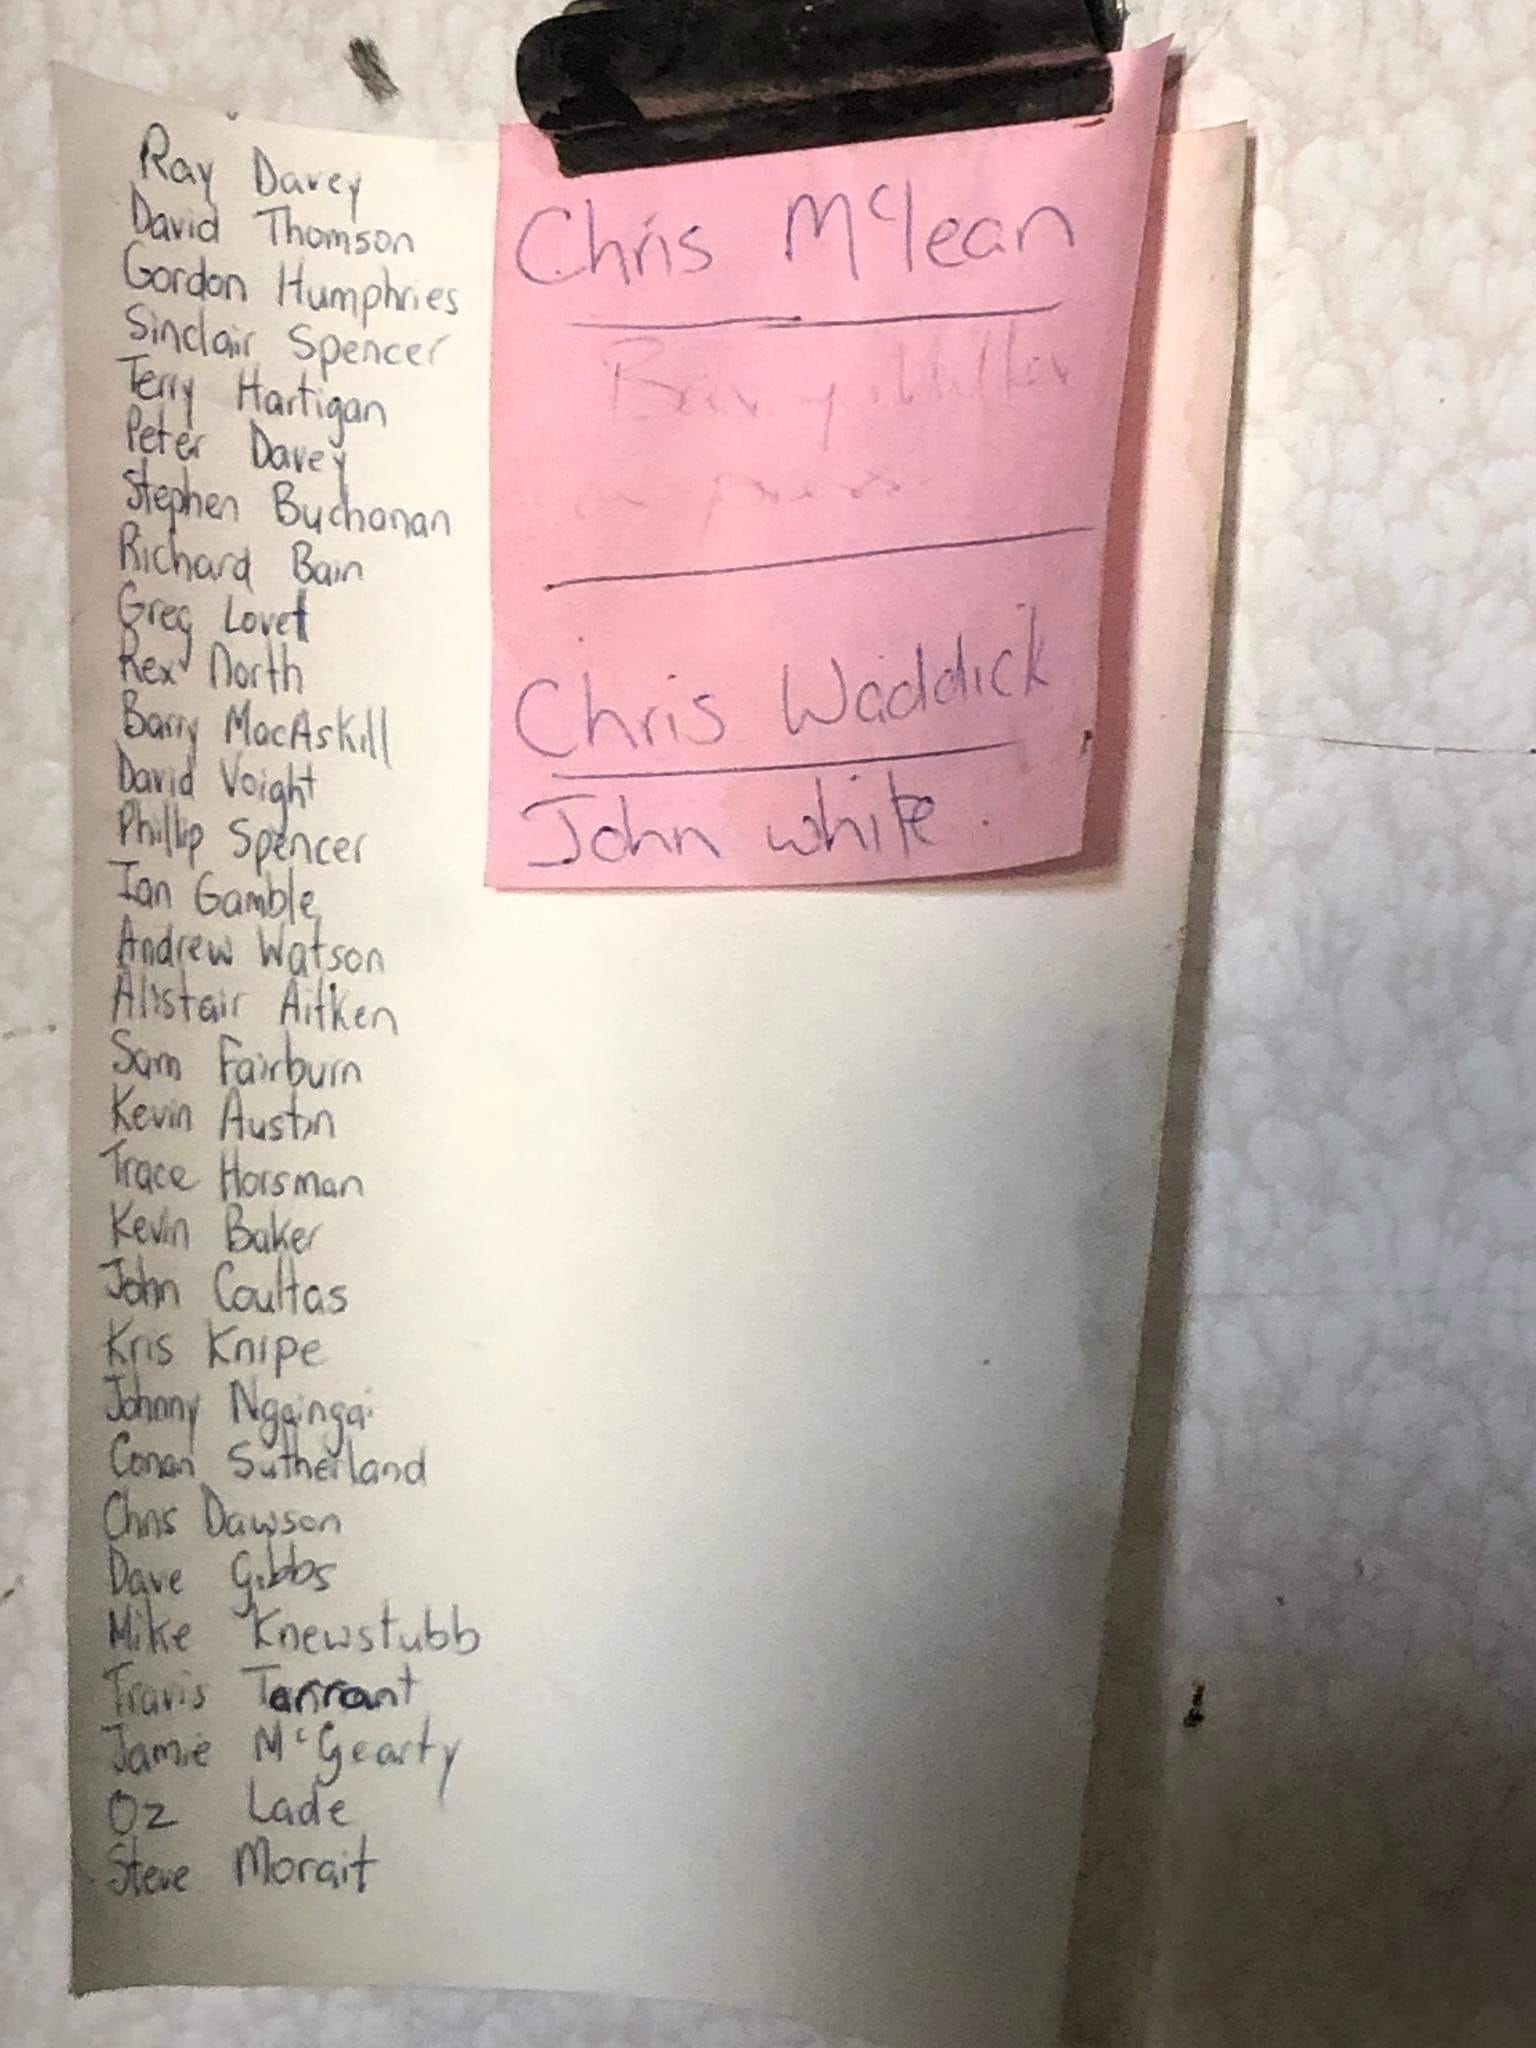 Ray Davey
David Thomson
Gordon Humphries
Sinclair Spencer
Terry Hartigan
Peter Davey
Stephen Buchanan
Richard Bain
Greg Lovet
Rex North
Barry MacAskill
David Voight
Phillip Spencer
Ian Gamble
Andrew Watson
Alistair Aitken
Sam Fairburn
Kevin Austin
Trace Horsman
Kevin Baker
John Coultas
Kris Knipe
Johnny Ngaingai
Conan Sutherland
Chris Dawson
Dave Gibbs
Mike Knewstubb
Travis Tarrant
Jamie McGearty
Oz Lade
Steve Morait
Chris Mclean
Chris Waddick
John white.